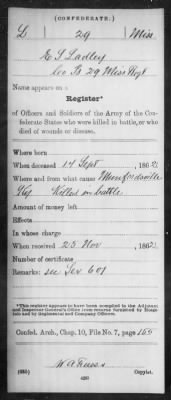 (CONFEDERATE.)
L 29 Miss
E S Ladley
Co B 29 Miss Regt
Name appears on a
Register*
of Officers and Soldiers of the Army of the Confederate States who were killed in battle, or who
died of wounds or disease.
Where born
When deceased 14 Sept, 1862
Where and from what cause Munfordsville
Ky Killed in battle
Amount of money left
Effects
In whose charge
When received 25 Nov, 1862
Number of certificate
Remarks: see Sev 601
*This register appears to have been compiled in the Adjutant
and Inspector General's Office from returns furnished by Hospitals and by Regimental and Company Officers.
Confed. Arch., Chap. 10, File No. 7, page 165
Copyist.